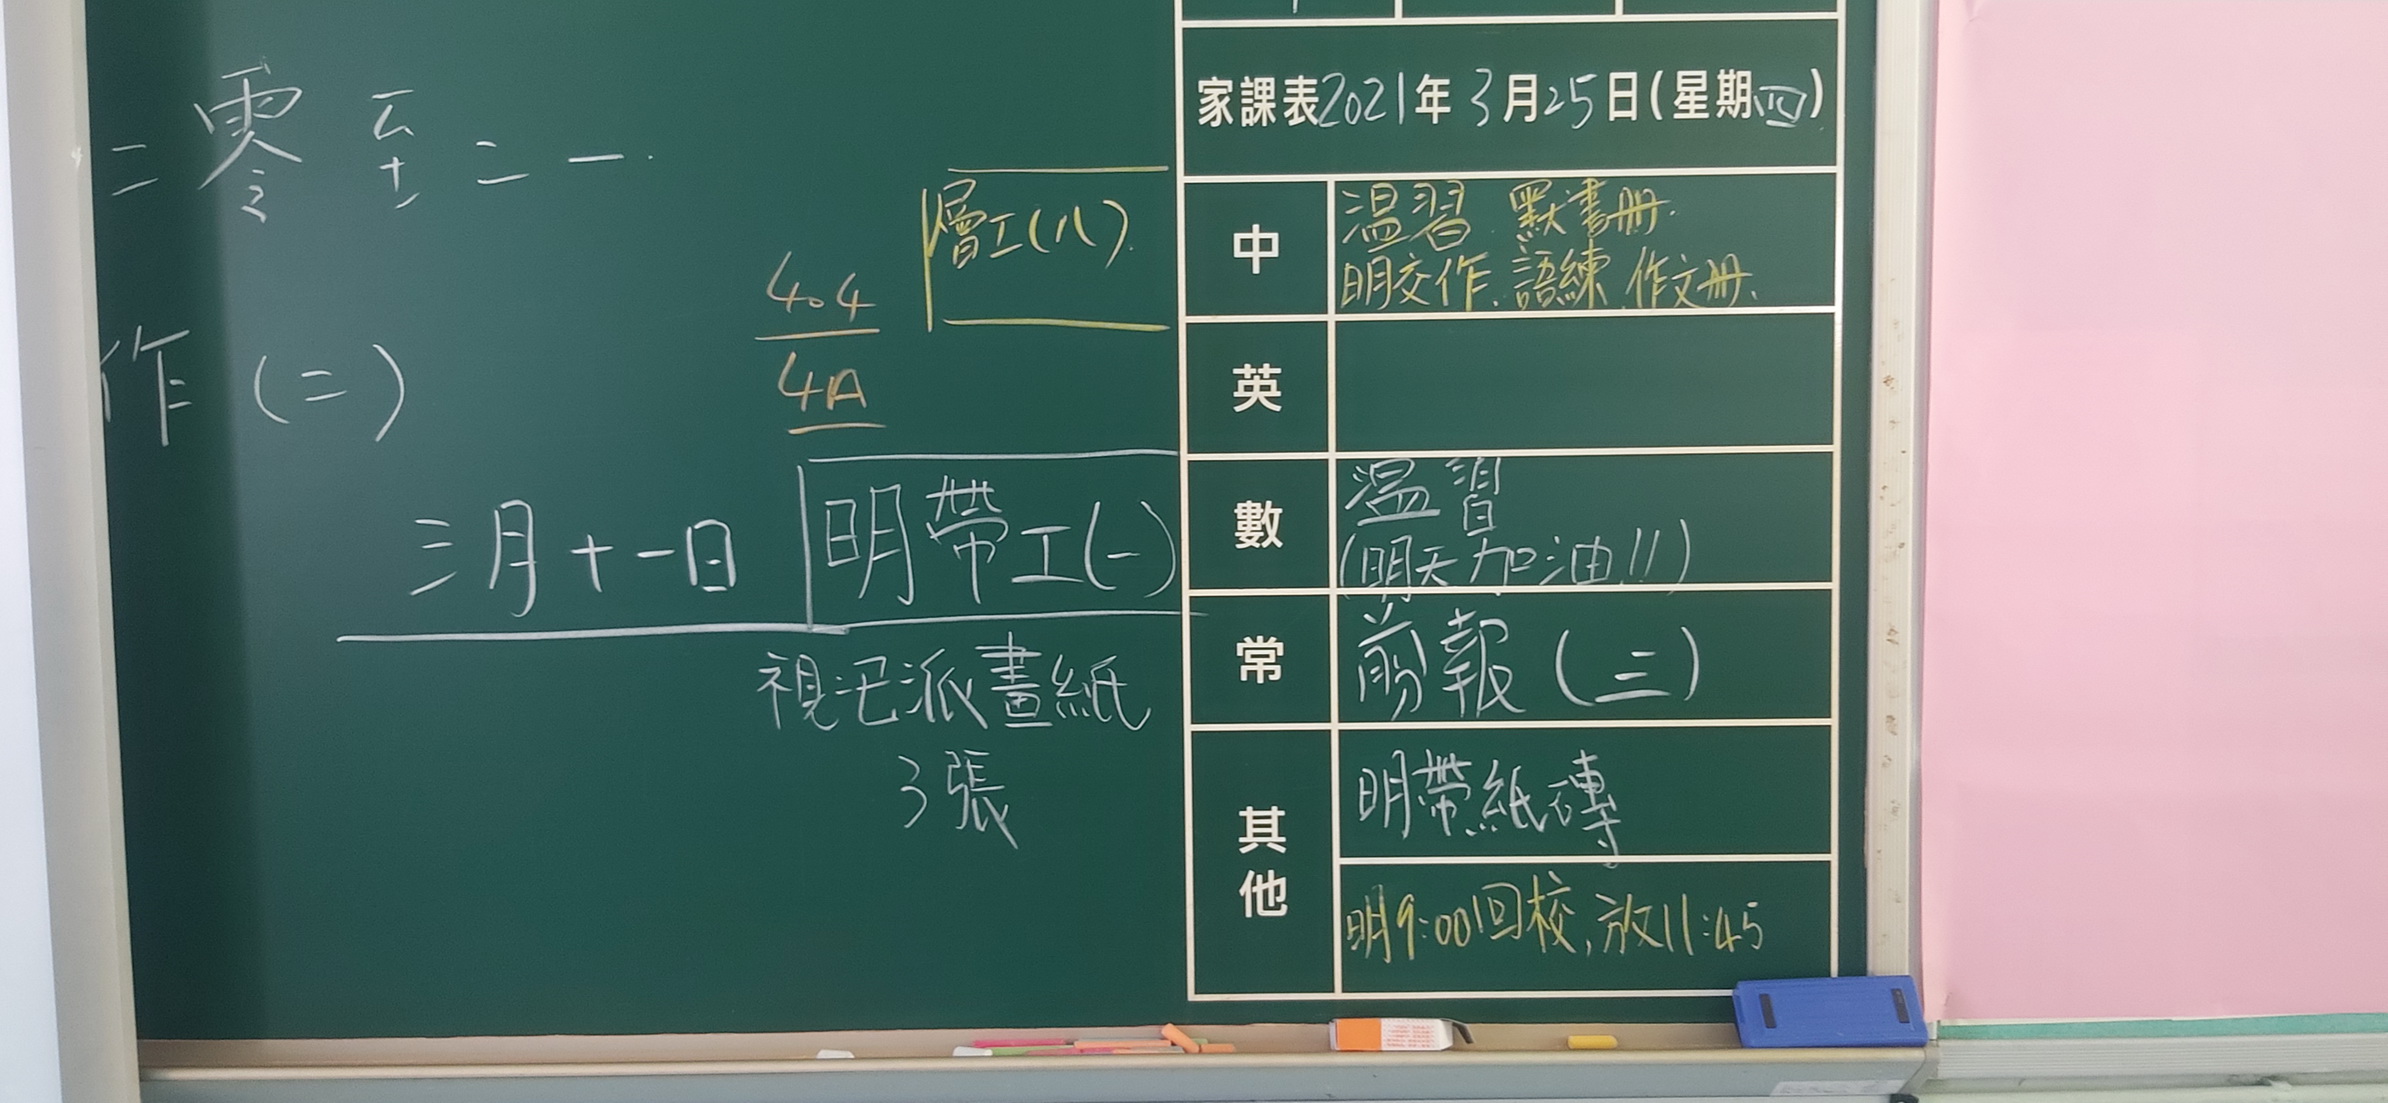 二零至二一
作(二)
404
4A
層工(八)
三月十一日
明帶工(一)
視已派畫紙
3張
家課表2021年3月25日(星期四)
中
温習 默書冊
明交作、語練、作文冊、
英
數
温習
(明天加油!!)
常
剪報(三)
其他
明帶紙磚
明9:00回校,放11:45